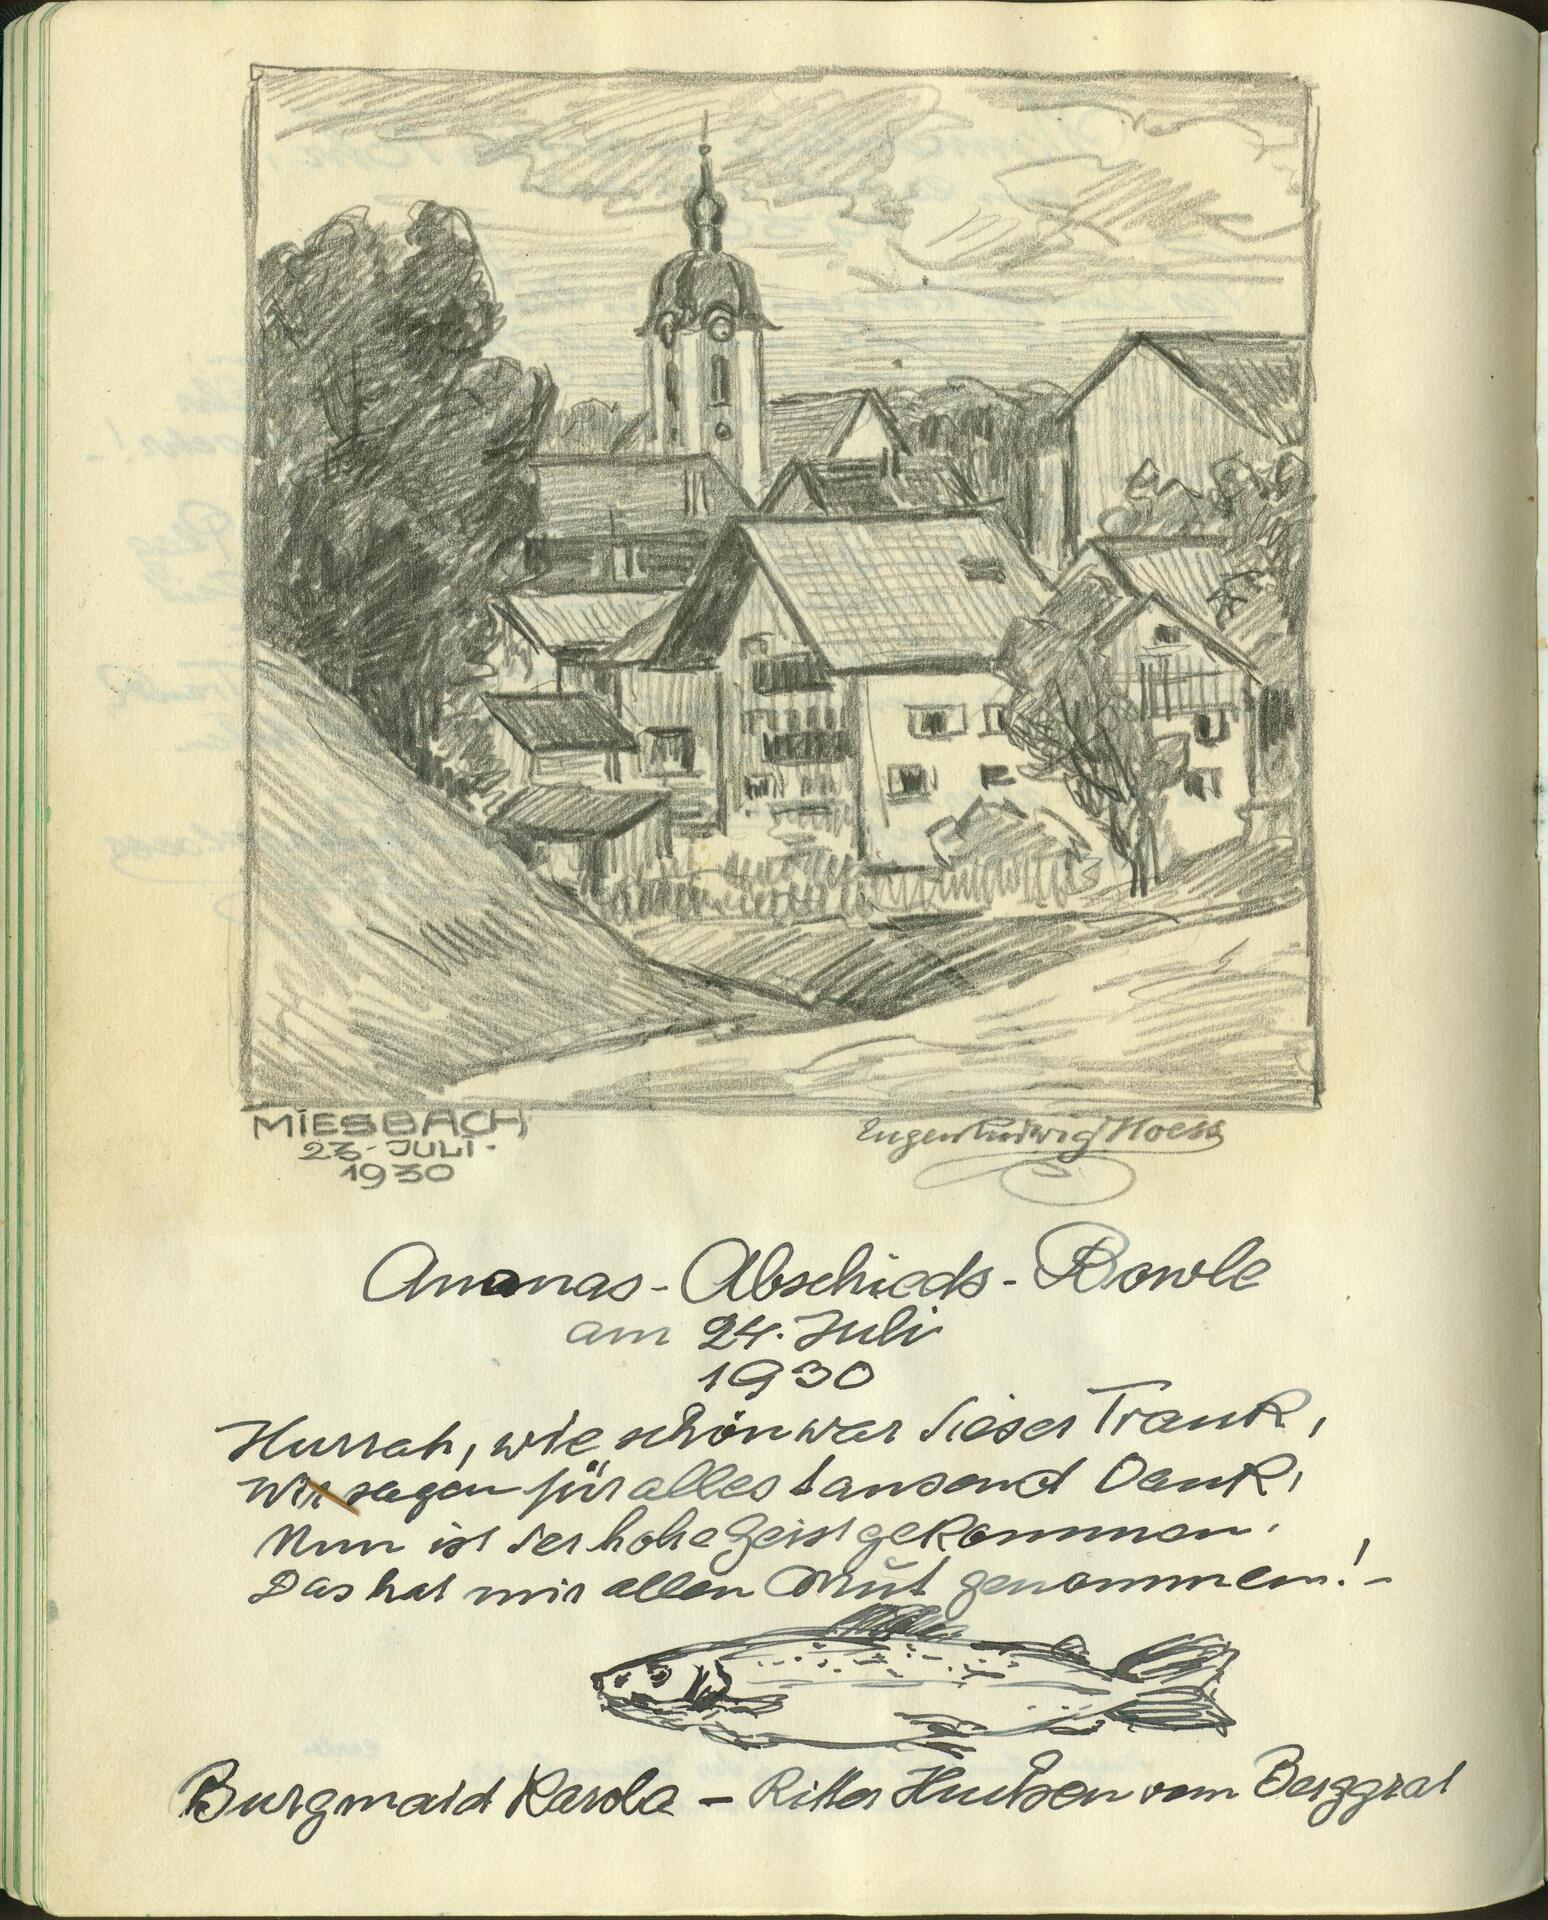 MIESBACH
23. JULI.
1930
Eugen Ludwig Hoess
Ananas-Abschieds-Bowle
am 24. Juli
1930
Hurrah, wie schön war dieser Trank,
Wir sagen für alles tausend Dank,
Nun ist der hohe Geist gekommen.
Das hat mir allen Mut genommen! -
Burgmaid Karola - Ritter vom Berggrat